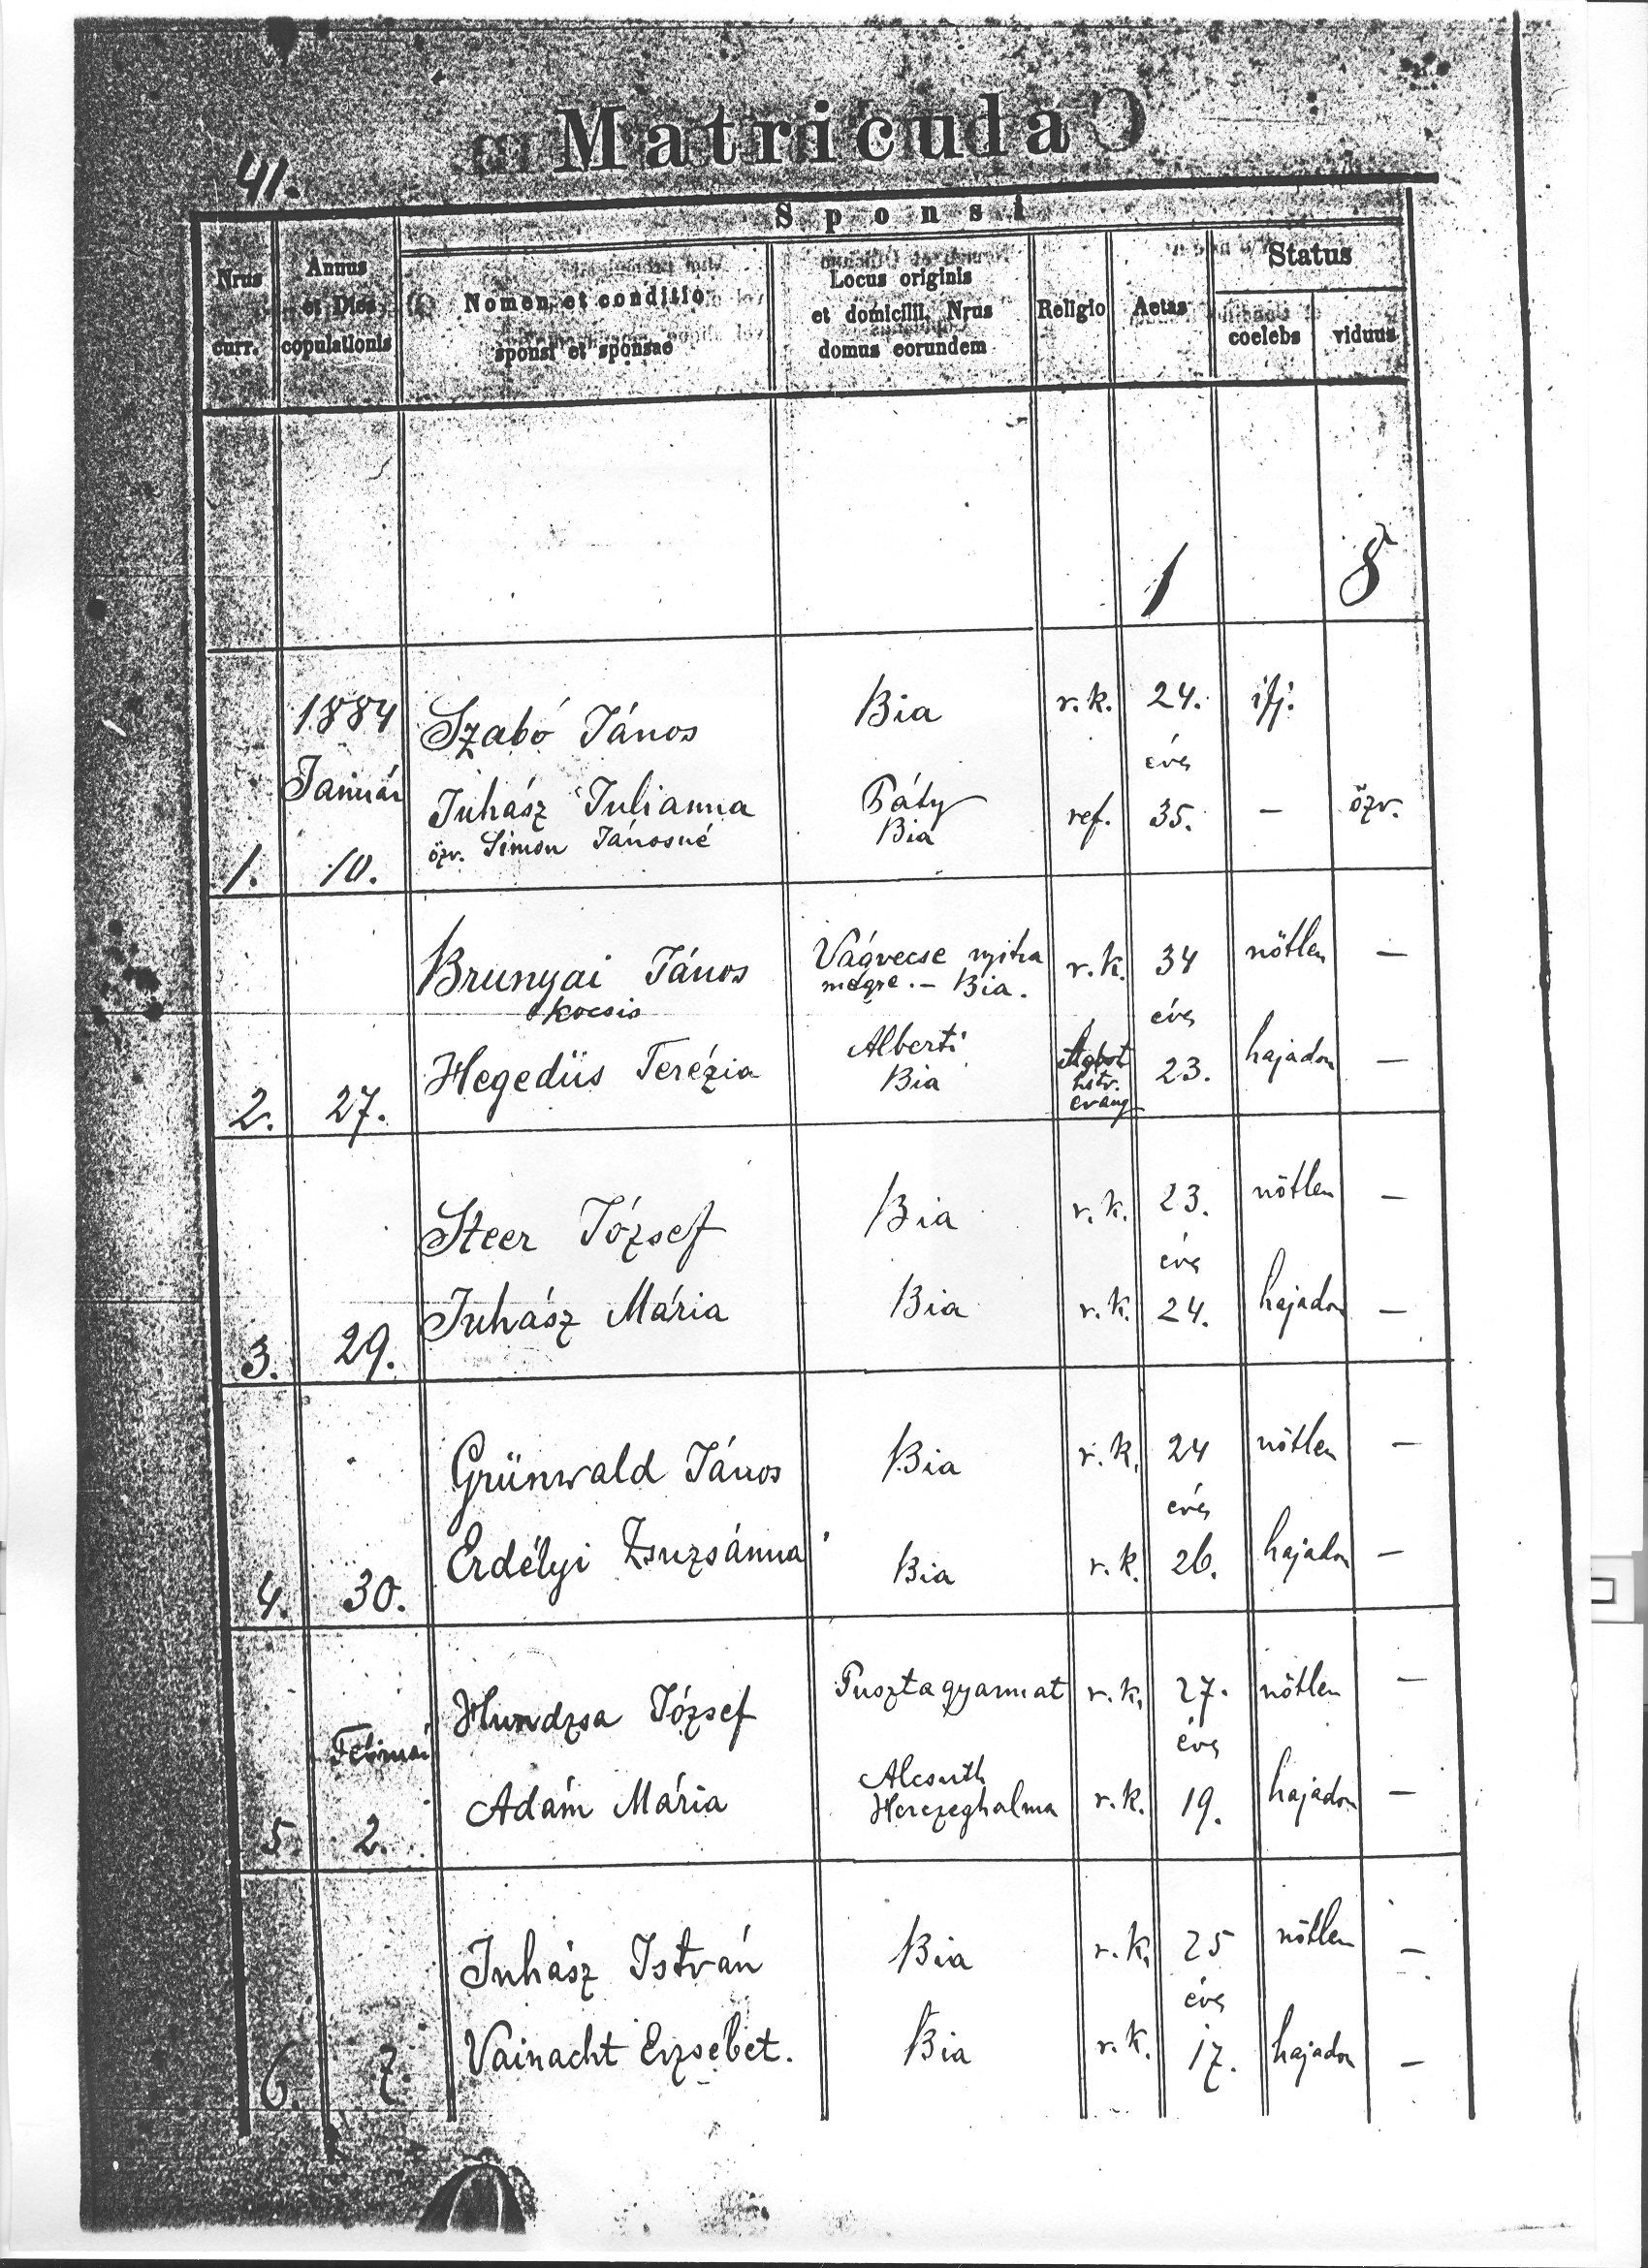 Matricula
41.
Sponsi
Nrus curr.
Annus et Dies copulationis
Nomen et conditio sponsi et sponsae
Locus originis et domicilii. Nrus domus eorundem
Religio
Aetas
Status
coelebs
viduus
1 8
1884 Szabó János Bia r. k. 24. ifj.
Január éves
Juhász Julianna Páty ref. 35. – özv.
özv. Simon Jánosné Bia
1. 10.
Brunyai János Vágvecse nyitra r. k. 34 nőtlen –
kocsis megye. – Bia. éves
Hegedüs Terézia Alberti 23. hajadon –
Bia
hitv.
evang
2. 27.
Steer József Bia r. k. 23. nőtlen –
éves
Juhász Mária Bia r. k. 24. hajadon –
3. 29.
Grünwald János Bia r. k. 24 nőtlen –
éves
Erdélyi Zsuzsánna Bia r. k. 26. hajadon –
4. 30.
Hundzsa József Pusztagyarmat r. k. 27. nőtlen –
Február éves
Adám Mária Alcsuth r. k. 19. hajadon –
Herczeghalma
5. 2.
Juhász István Bia r. k. 25 nőtlen –
éves
Vainacht Erzsébet. Bia r. k. 17. hajadon –
6. 7.